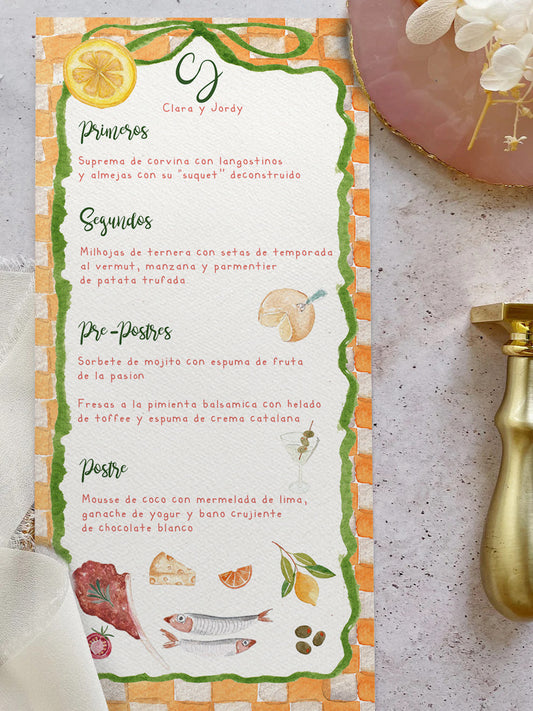 CJ
Clara y Jordy
Primeros
Suprema de corvina con langostinos
y almejas con su "suquet" deconstruido
Segundos
Milhojas de ternera con setas de temporada
al vermut, manzana y parmentier
de patata trufada
Pre-Postres
Sorbete de mojito con espuma de fruta
de la pasion
Fresas a la pimienta balsamica con helado
de toffee y espuma de crema catalana
Postre
Mousse de coco con mermelada de lima,
ganache de yogur y bano crujiente
de chocolate blanco